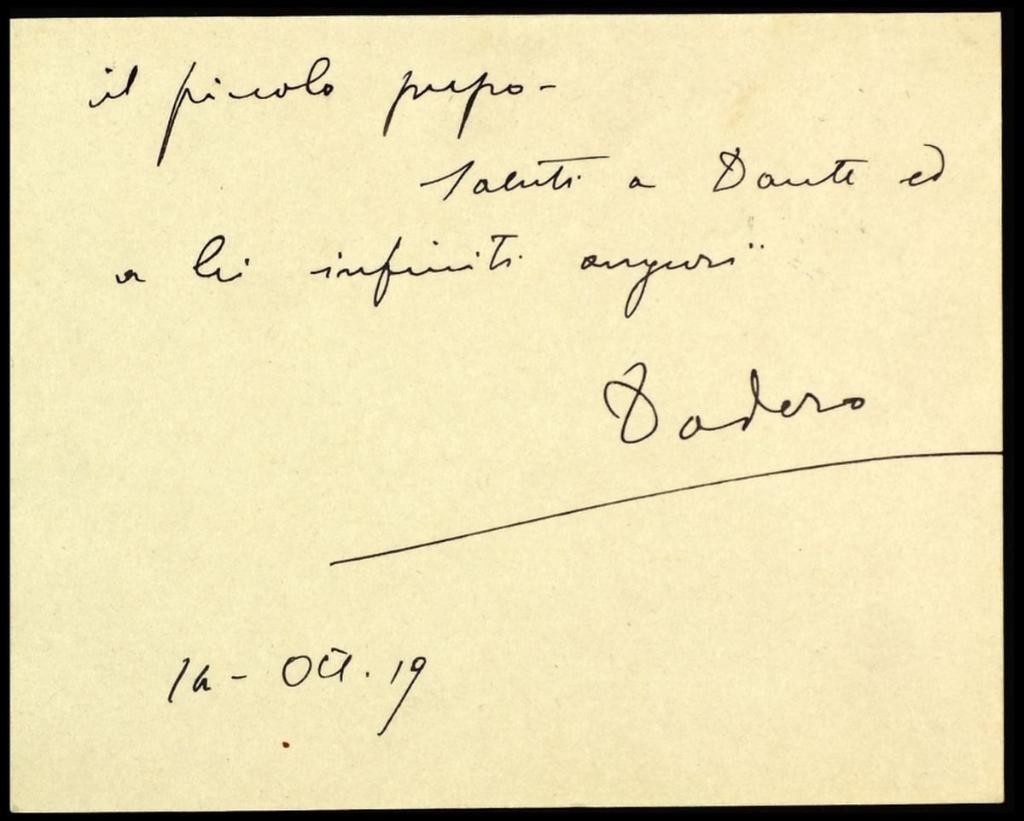 il piccolo
Saluti a Dante ed
a lei infiniti auguri
Dodero
Ott. 19